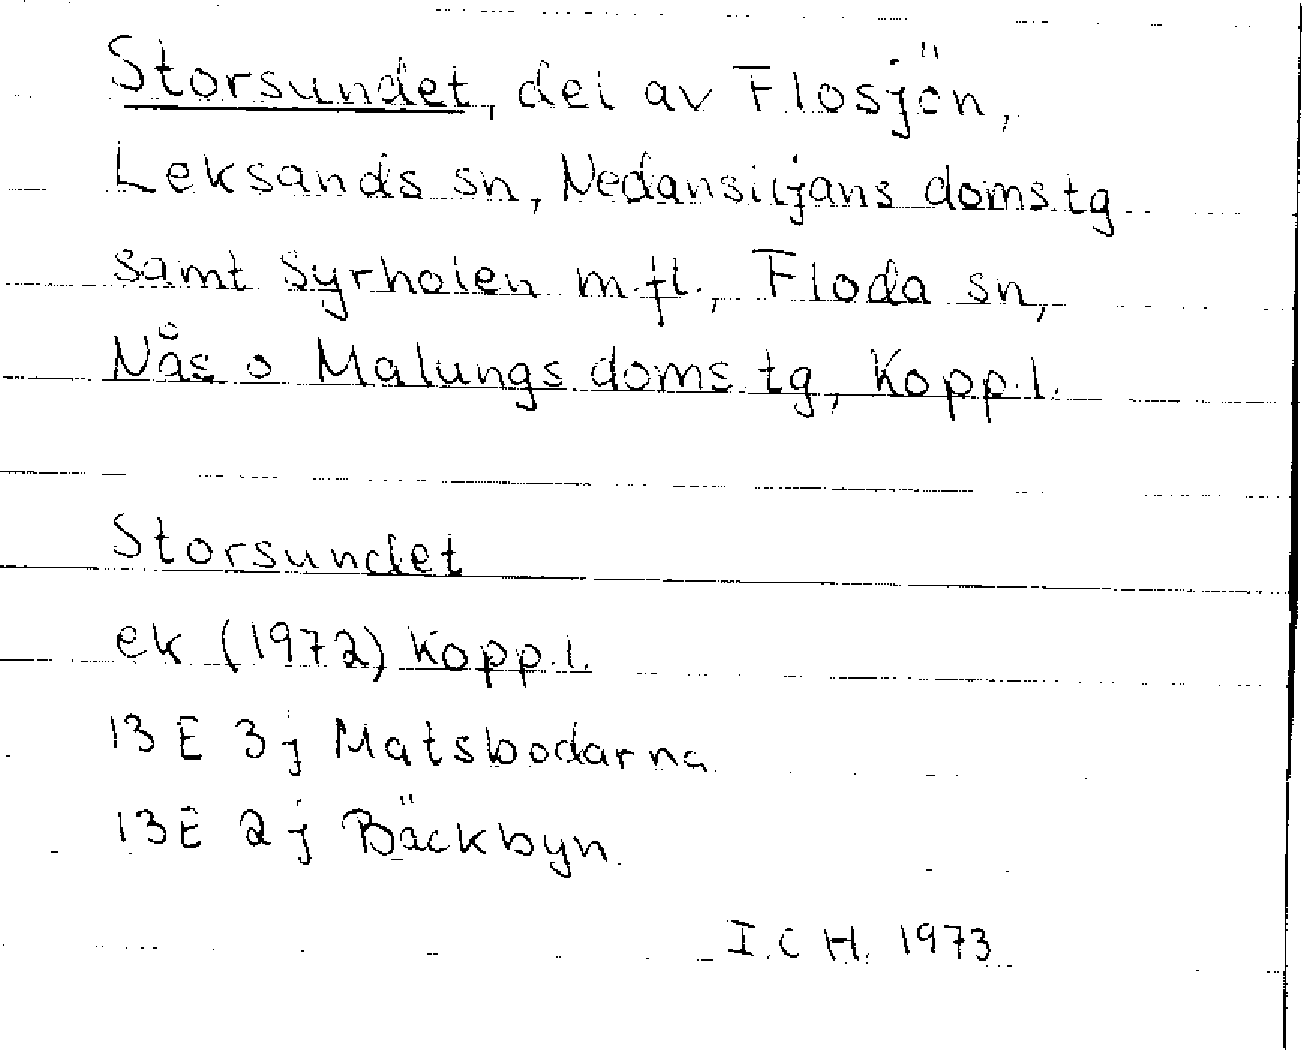 Storsundet, del av Flosjön,
Leksands sn, Nedansiljans domstg
samt Syrholen m.fl., Floda sn,
Nås o Malungs doms.tg, Kopp.l.
Storsundet
ek (1972) Kopp.l.
13 E 3j Matsbodarna
13E 2j Bäckbyn.
I.C H. 1973